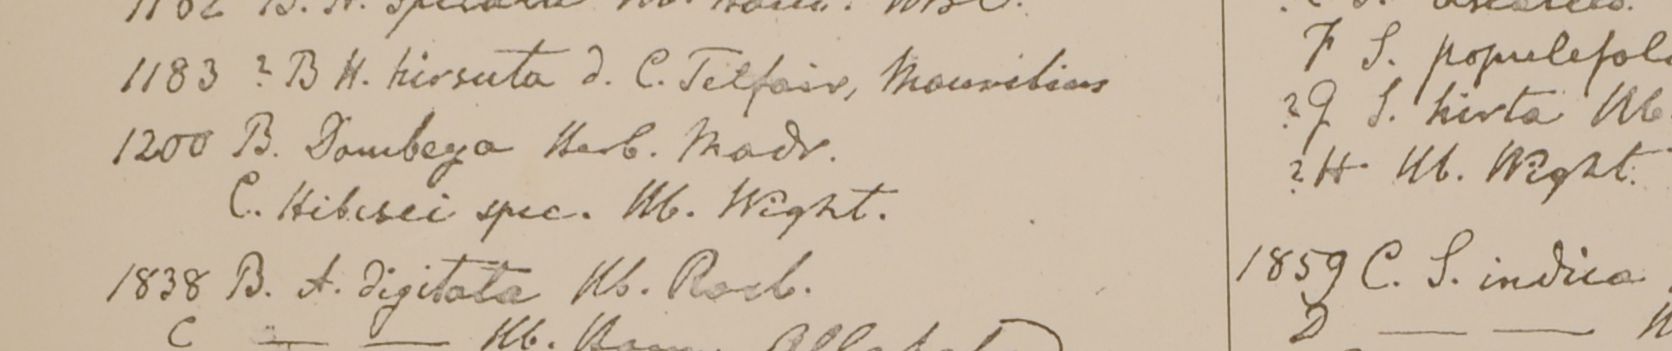 1182 B. H.
1183 ? B H. hirsuta d. C. Telfair, Mauritius
1200 B. Dombeya Herb. Madr.
C. Hibisci spec. Hb. Wight.
1838 B. A. digitata Hb. Roxb.
C — — Hb.
F S. populefol
? G S. hirta Hb.
? H Hb. Wight.
1859 C. S. indica
D — —